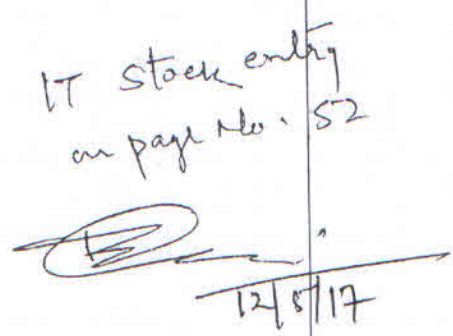 IT Stock entry
on page No. 52
12/5/17